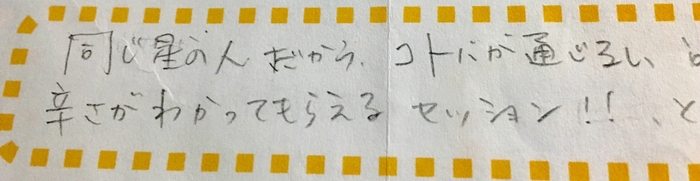 同じ星の人だから、コトバが通じるし、
辛さがわかってもらえるセッション!!、と